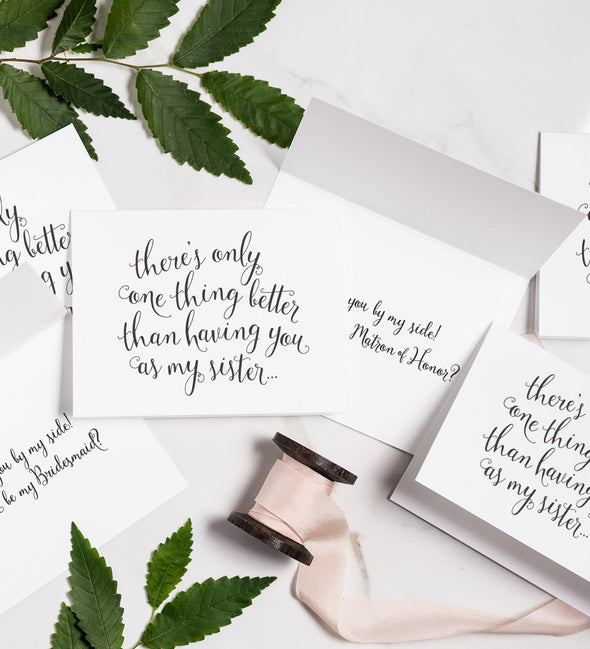 ly
ng better
ng y
there's only
one thing better
than having you
as my sister...
you by my side!
Matron of Honor?
there's
one thing
than having
as my sister...
you by my side!
be my Bridesmaid?